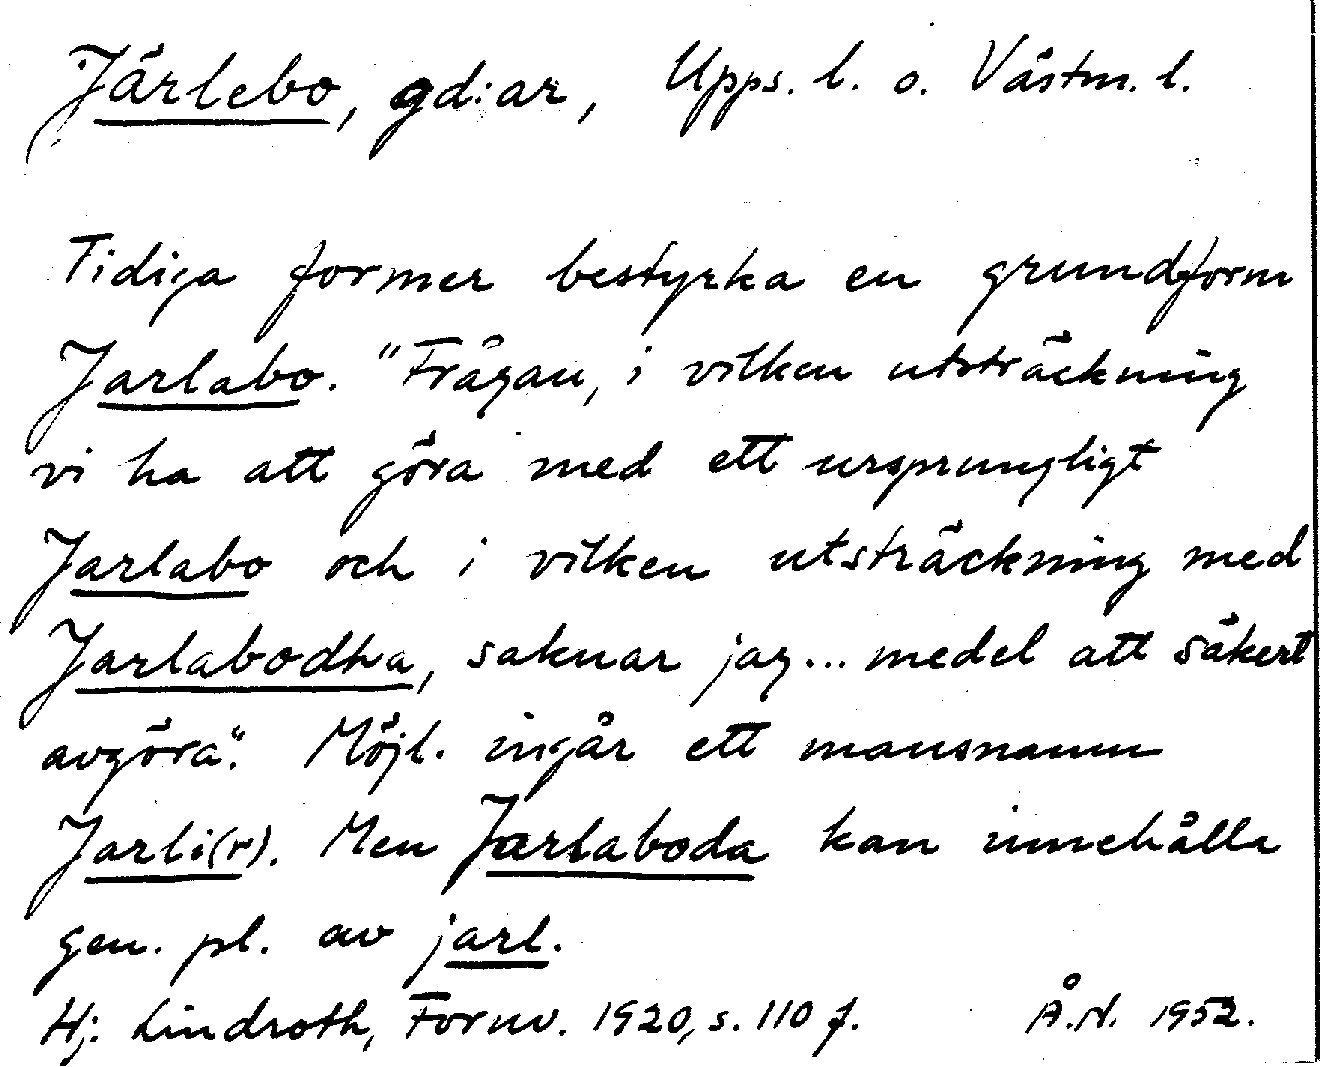 Järlebo, gd:ar, Upps. l. o. Västm. l.
Tidiga former bestyrka en grundform
Jarlabo. "Frågan, i vilken utsträckning
vi ha att göra med ett ursprungligt
Jarlabo och i vilken utsträckning med
Jarlabodha, saknar jag... medel att säkert
avgöra". Möjl. ingår ett mansnamn
Jarli(r). Men Jarlaboda kan innehålla
gen. pl. av jarl.
Hj. Lindroth, Fornv. 1920, s. 110 f. Å.N. 1952.